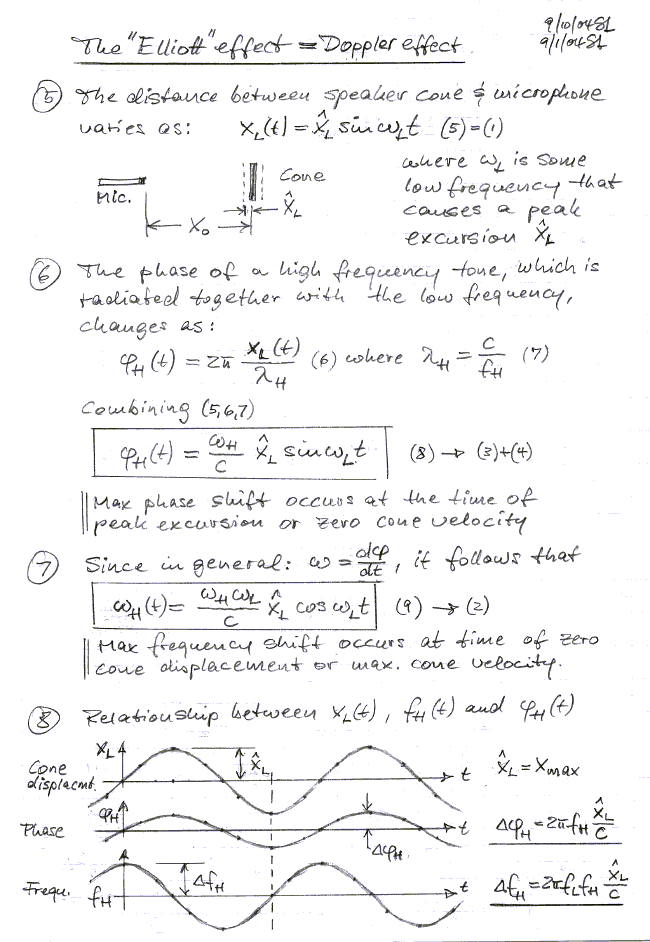 9/10/04SL
The "Elliott" effect = Doppler effect 9/1/04SL
⑤ The distance between speaker cone & microphone
varies as: x_L(t) = x̂_L sin ω_L t (5)=(1)
Mic. X₀ Cone x̂_L
where ω_L is some
low frequency that
causes a peak
excursion x̂_L
⑥ The phase of a high frequency tone, which is
radiated together with the low frequency,
changes as:
φ_H(t) = 2π x_L(t)/λ_H (6) where λ_H = c/f_H (7)
Combining (5,6,7)
φ_H(t) = ω_H/c x̂_L sin ω_L t (8) → (3)+(4)
Max phase shift occurs at the time of
peak excursion or zero cone velocity
⑦ Since in general: ω = dφ/dt, it follows that
ω_H(t) = ω_H ω_L/c x̂_L cos ω_L t (9) → (2)
Max frequency shift occurs at time of zero
cone displacement or max. cone velocity.
⑧ Relationship between x_L(t), f_H(t) and φ_H(t)
Cone
displacmt. x_L x̂_L t x̂_L = x_max
Phase φ_H Δφ_H t Δφ_H = 2πf_H x̂_L/c
Frequ. f_H Δf_H t Δf_H = 2πf_L f_H x̂_L/c